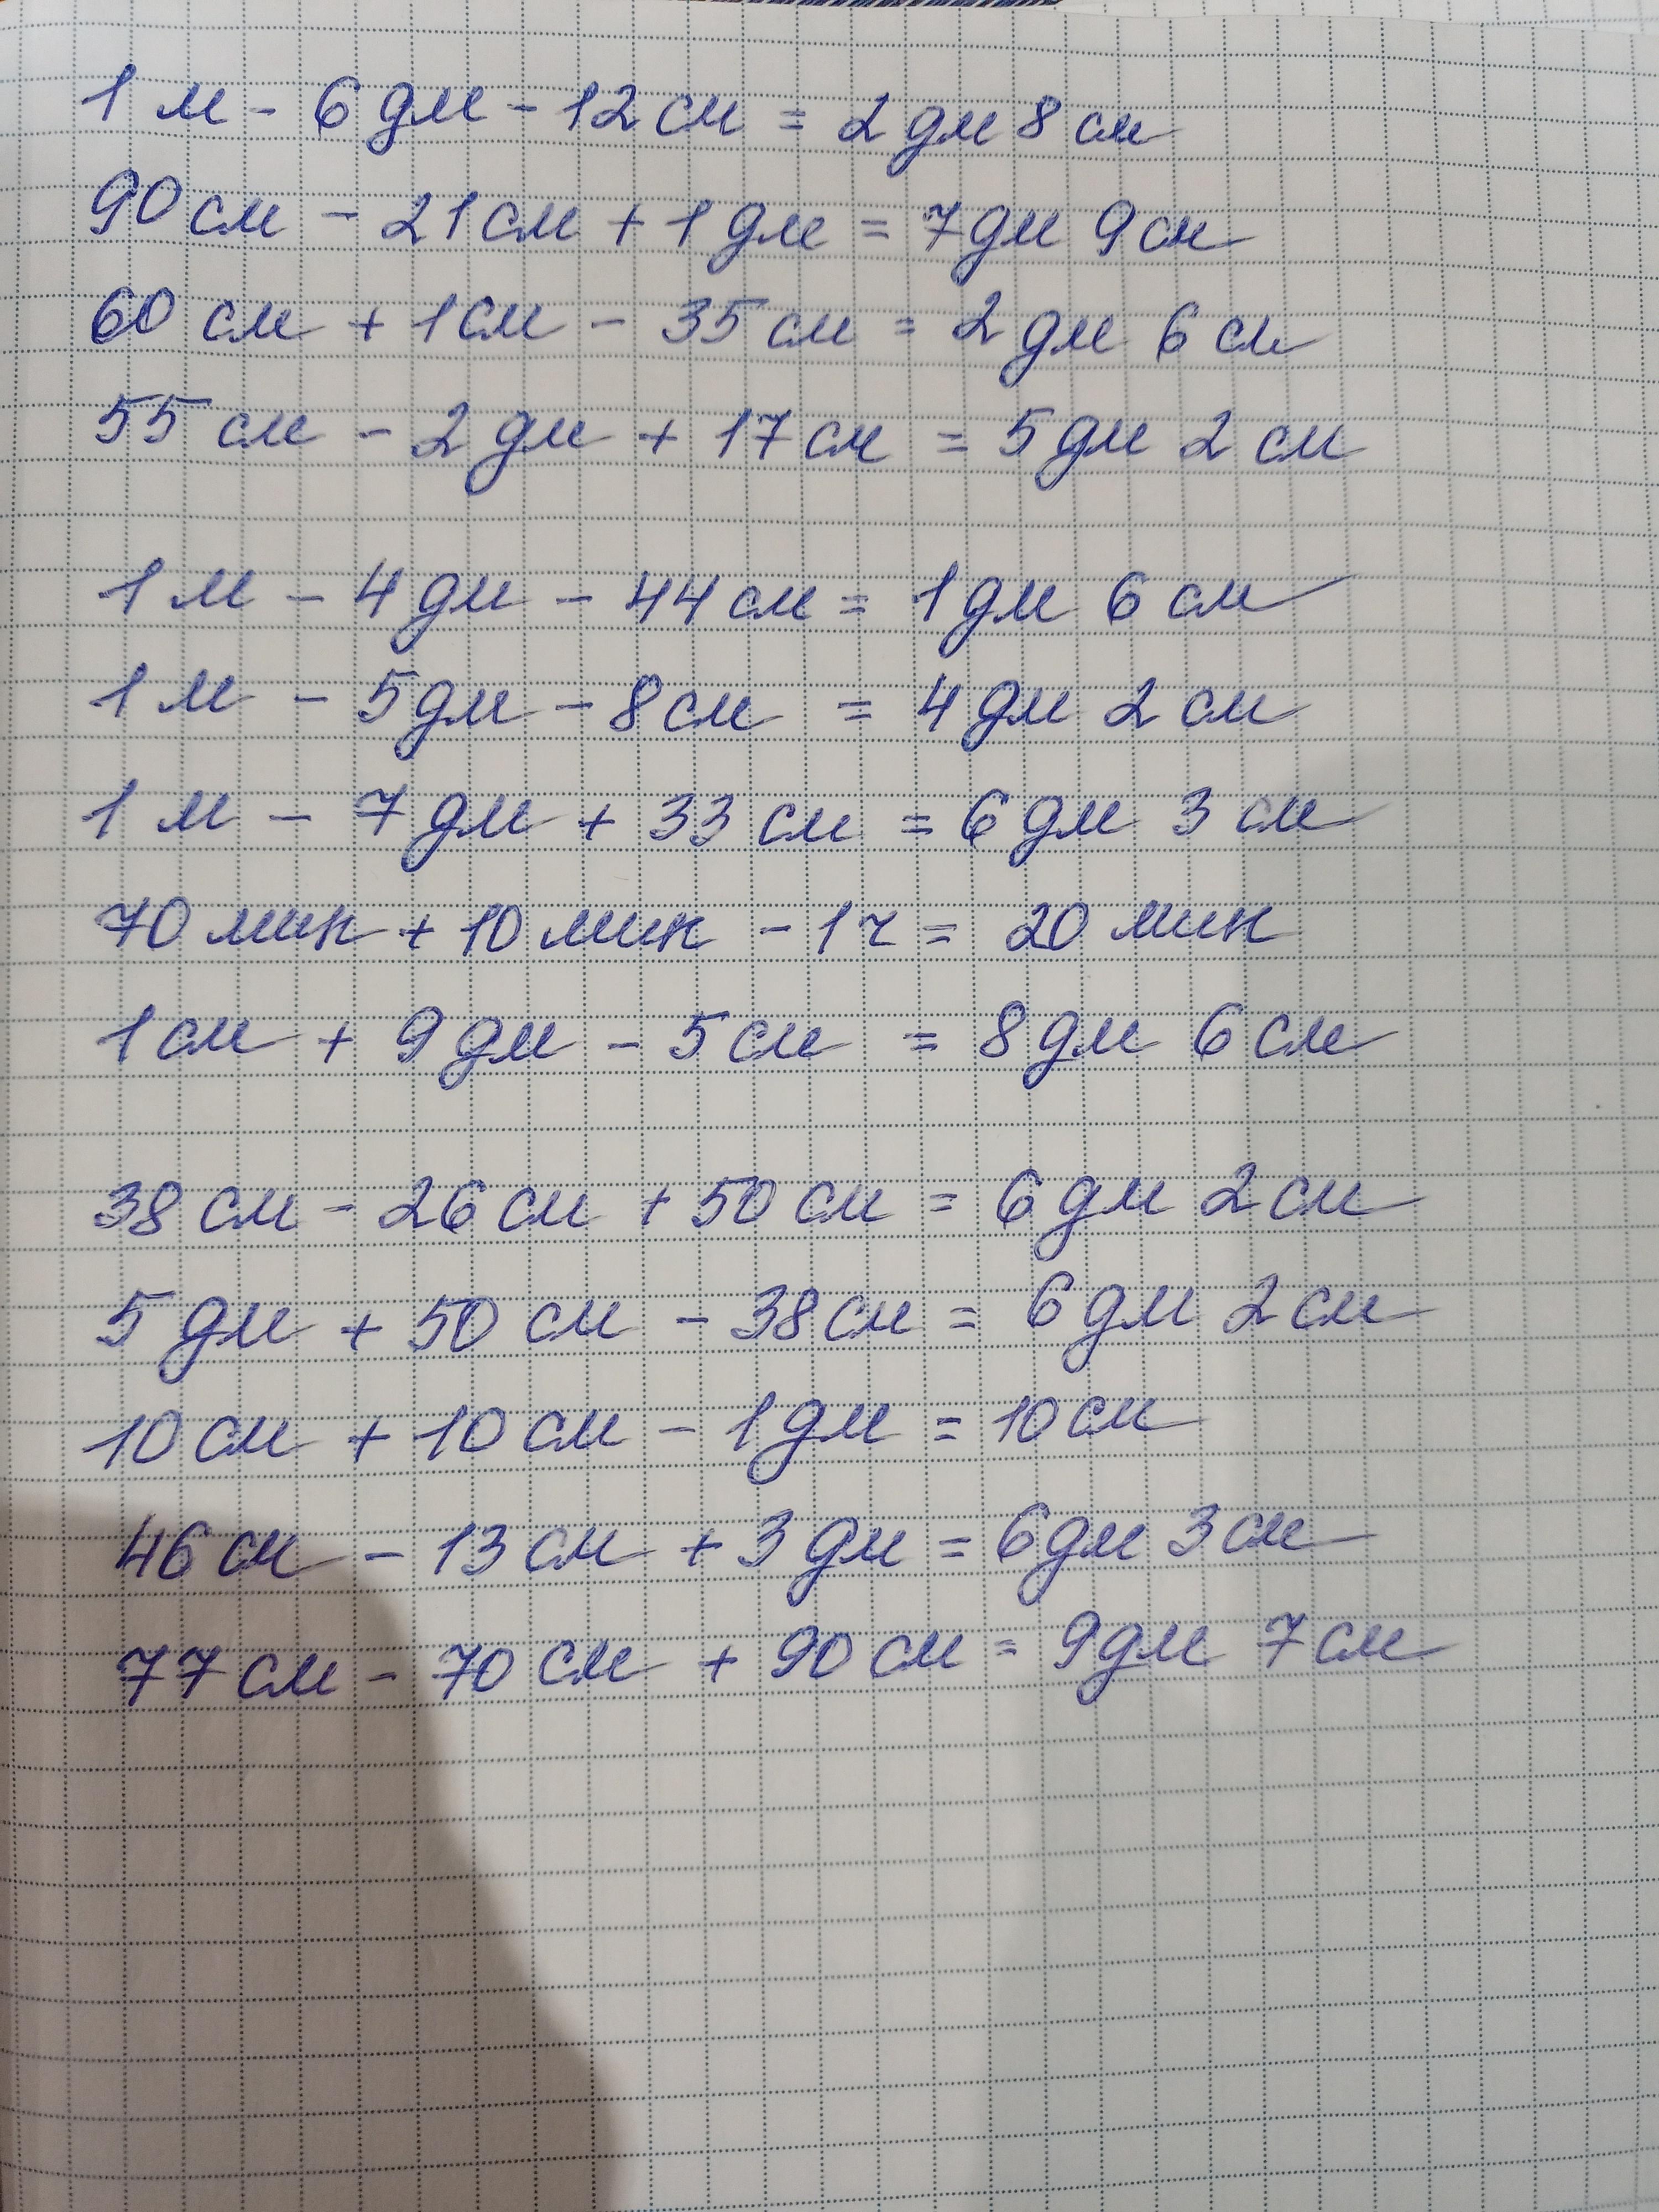 1 м - 6 дм - 12 см = 2 дм 8 см
90 см - 21 см + 1 дм = 7 дм 9 см
60 см + 1 см - 35 см = 2 дм 6 см
55 см - 2 дм + 17 см = 5 дм 2 см
1 м - 4 дм - 44 см = 1 дм 6 см
1 м - 5 дм - 8 см = 4 дм 2 см
1 м - 7 дм + 33 см = 6 дм 3 см
70 мин + 10 мин - 1 ч = 20 мин
1 см + 9 дм - 5 см = 8 дм 6 см
38 см - 26 см + 50 см = 6 дм 2 см
5 дм + 50 см - 38 см = 6 дм 2 см
10 см + 10 см - 1 дм = 10 см
46 см - 13 см + 3 дм = 6 дм 3 см
77 см - 70 см + 90 см = 9 дм 7 см